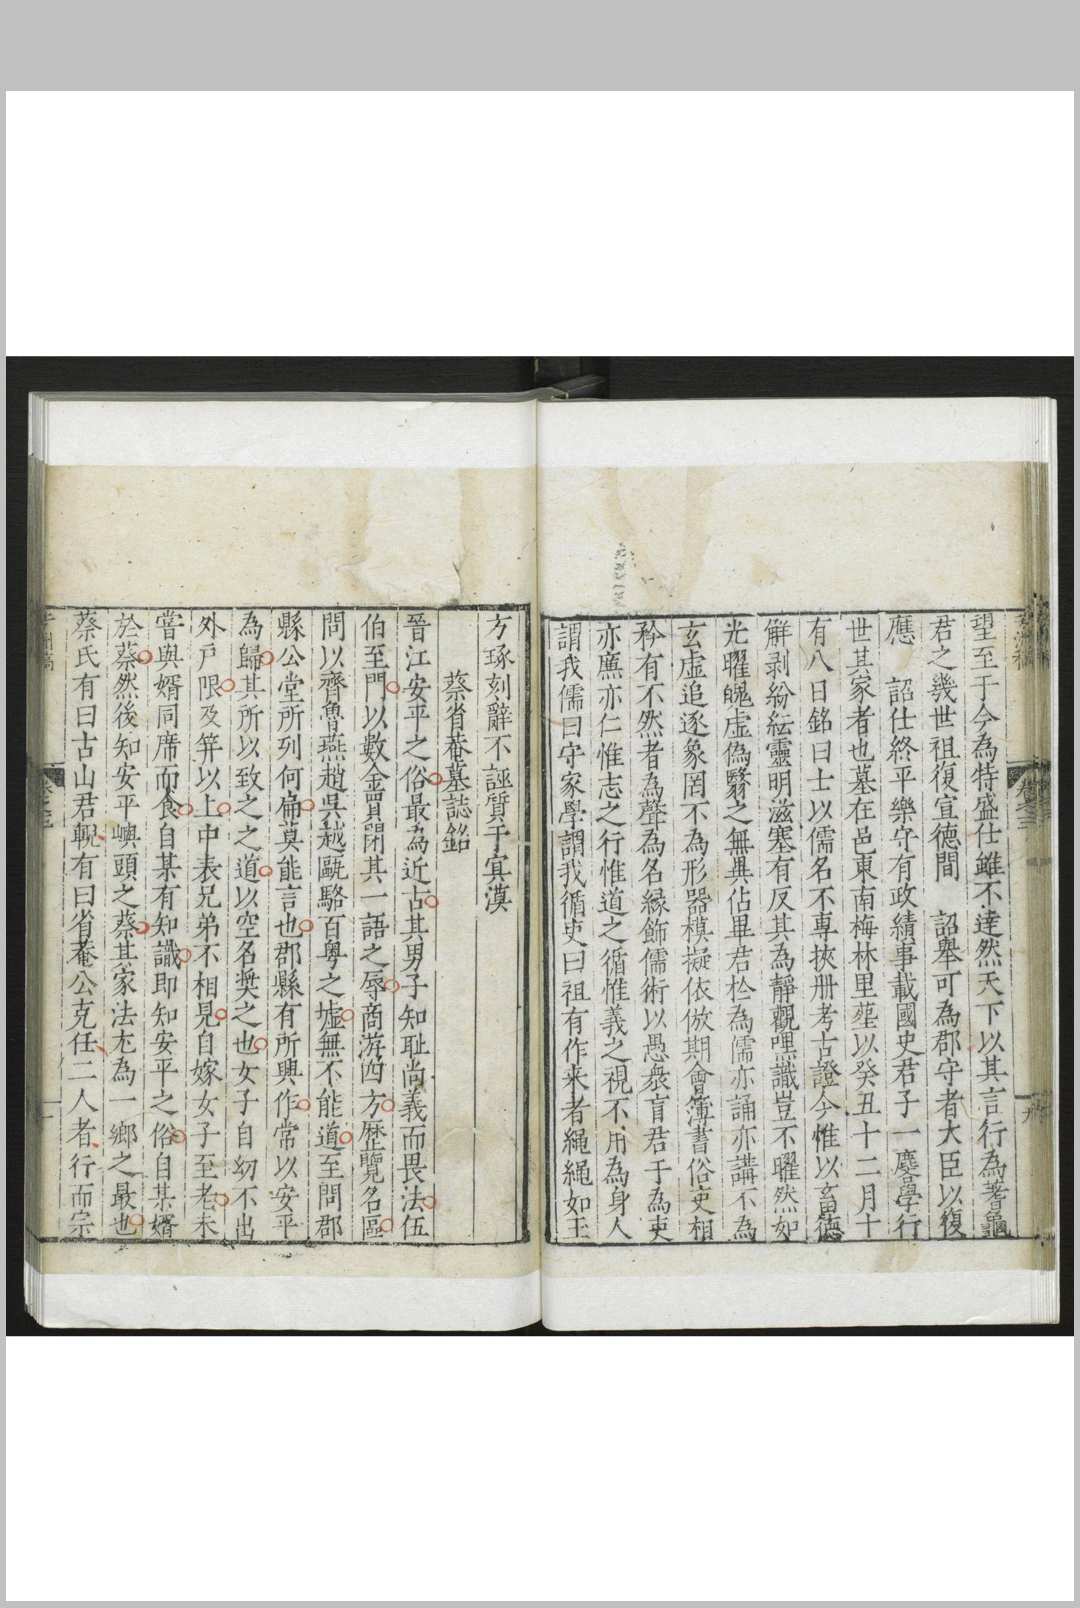 望至于今為特盛仕雖不達然天下以其言行為蓍龜
君之幾世祖復宣德間　詔舉可為郡守者大臣以復
應　詔仕終平樂守有政績事載國史君子一麐學行
世其家者也墓在邑東南梅林里塟以癸丑十二月十
有八日銘曰士以儒名不專挾册考古證今惟以畜德
解剥紛紜靈明滋塞有反其為靜觀嘿識豈不曜然如
光曜魄虛偽翳之無異佔畢君於為儒亦誦亦講不為
玄虛追逐象罔不為形器模擬依倣期會簿書俗吏相
矜有不然者為聲為名緣飾儒術以愚衆盲君于為吏
亦廉亦仁惟志之行惟道之循惟義之視不用為身人
謂我儒曰守家學謂我循吏曰祖有作来者繩繩如玉
方琢刻辭不誣質于冥漠
蔡省菴墓誌銘
晉江安平之俗最為近古其男子知耻尚義而畏法伍
伯至門以數金買閉其一語之辱商游四方歷覽名區
問以齊魯燕趙吳越甌駱百粤之墟無不能道至問郡
縣公堂所列何偹莫能言也郡縣有所興作常以安平
為歸其所以致之之道以空名奬之也女子自幼不出
外戸限及筓以上中表兄弟不相見自嫁女子至老未
嘗與婿同席而食自某有知識即知安平之俗自某婿
於蔡然後知安平嶼頭之蔡其家法尤為一鄉之最也
蔡氏有曰古山君軦有曰省菴公克任二人者行而宗